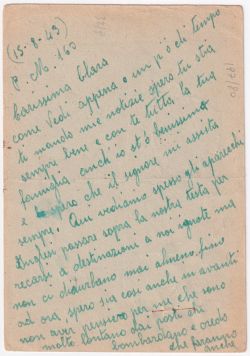 (15-8-43)
P. M. 160
Carissima Clara
come vedi appena o un pò di tempo
ti mando mie notizie spero tu stia
sempre bene e con te tutta la tua
famiglia anch'io stò benissimo
e spero che il signor mi assista
sempre. Qui vediamo spesso gli aparecchi
Inglesi passare sopra la nostra testa per
recarsi a destinazioni a noi ignote ma
non ci disturbano mai almeno fino
ad ora, spero sia cosi anche in avanti
non aver pensiero per me che sono
molto lontano dai posti che
bombardano e credo
che faranno
anche